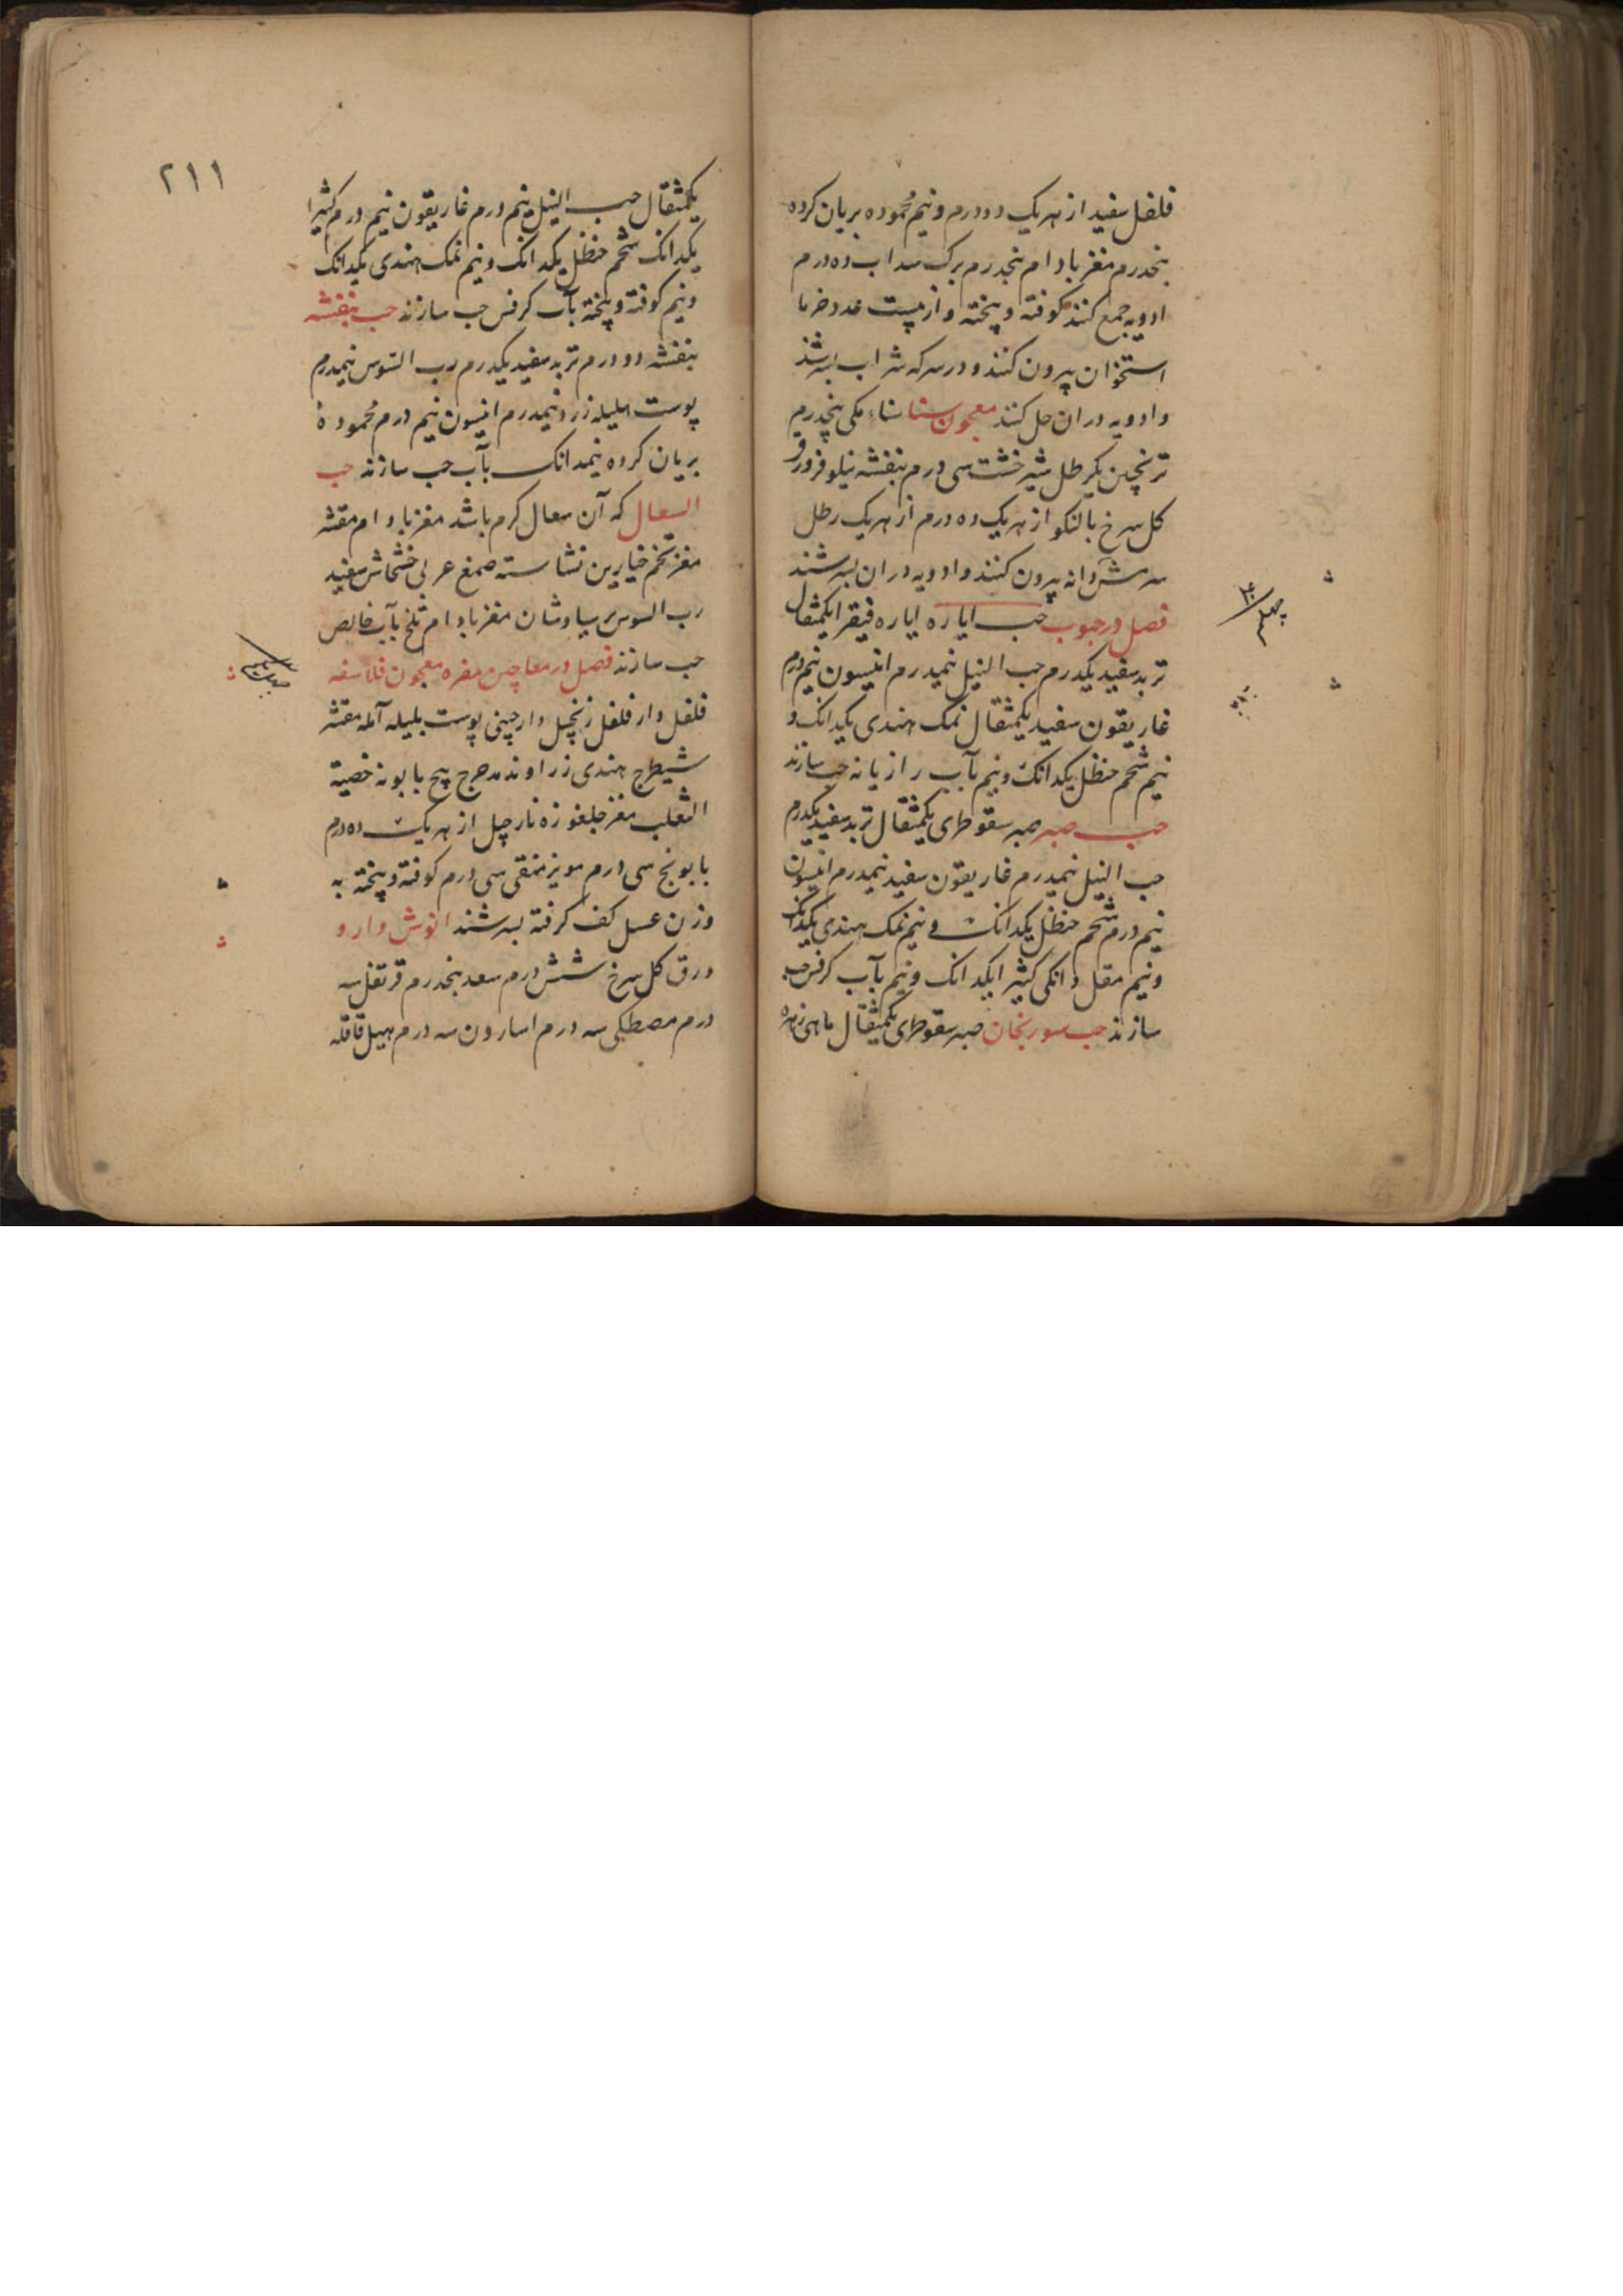 فلفل سفید از هریک دو درم و نیم محموده بریان کرده
پنجدرم مغز بادام پنجدرم برک سداب ده درم
ادویه جمع کنند کوفته و پخته و از بیست عدد خرما
استخوان بیرون کنند و در سرکه شراب بسرشند
و ادویه در ان حل کنند معجون سنا سناء مکی پنجدرم
ترنجبین یکرطل شیرخشت سی درم بنفشه نیلوفر ورق
کل سرخ بالنکو از هریک ده درم از هریک رطل
سرشته دانه بیرون کنند و ادویه در ان بسرشند
فصل در حبوب حب ایاره ایاره فیقرا یکمثقال
تربد سفید یکدرم حب النیل نیمدرم انیسون نیم درم
غاریقون سفید یکمثقال نمک هندی یکدانک و
نیم شحم حنظل یکدانک و نیم بآب رازیانه حب سازند
حب صبر صبر سقوطری یکمثقال تربد سفید یکدرم
حب النیل نیمدرم غاریقون سفید نیمدرم انیسون
نیم درم شحم حنظل یکدانک و نیم نمک هندی یکدانک
و نیم مقل دانکی کثیرا یکدانک و نیم بآب کرفس حب
سازند حب سورنجان صبر سقوطری یکمثقال ماهی زهره
۲۱۱
یکمثقال حب النیل نیم درم غاریقون نیم درم کثیرا
یکدانک شحم حنظل یکدانک و نیم نمک هندی یکدانک
و نیم کوفته و پخته بآب کرفس حب سازند حب بنفشه
بنفشه دو درم تربد سفید یکدرم رب السوس نیمدرم
پوست هلیله زرد نیمدرم انیسون نیم درم محموده
بریان کرده نیمدانک بآب حب سازند حب
السعال که آن سعال کرم باشد مغز بادام مقشر
مغز تخم خیارین نشاسته صمغ عربی خشخاش سفید
رب السوس پرسیاوشان مغز بادام تلخ بآب خالص
حب سازند فصل در معاجین مفره معجون فلاسفه
فلفل دارفلفل زنجبیل دارچینی پوست بلیله آمله مقشر
شیطرج هندی زراوند مدحرج بیخ بابونه خصیة
الثعلب مغز جلغوزه نارجیل از هریک ده درم
بابونج سی درم مویز منقی سی درم کوفته و پخته به
وزن عسل کف کرفته بسرشند انوش دارو
ورق کل سرخ شش درم سعد پنجدرم قرنفل سه
درم مصطکی سه درم اسارون سه درم هیل قاقله